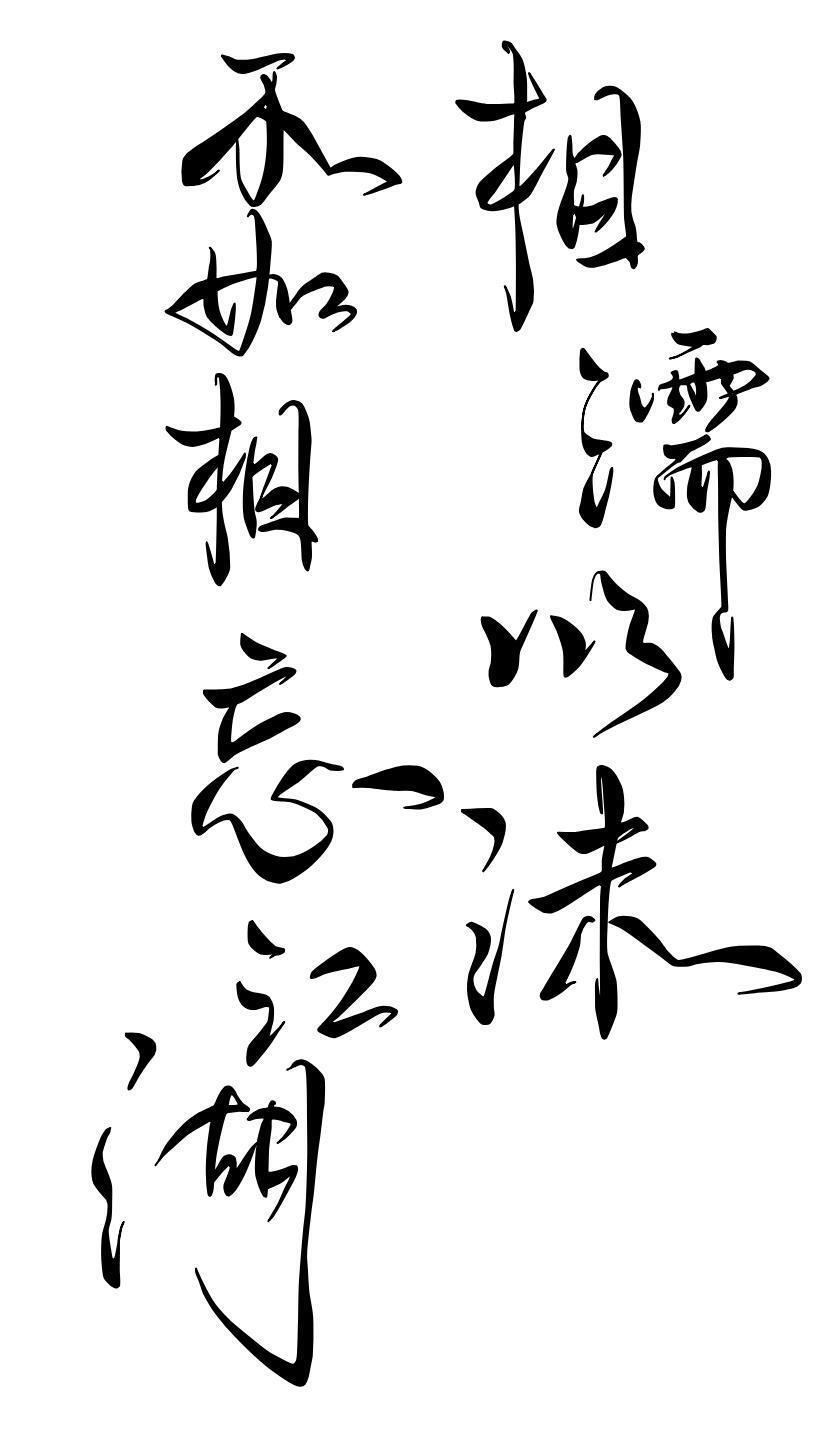 相濡以沫
不如相忘江湖